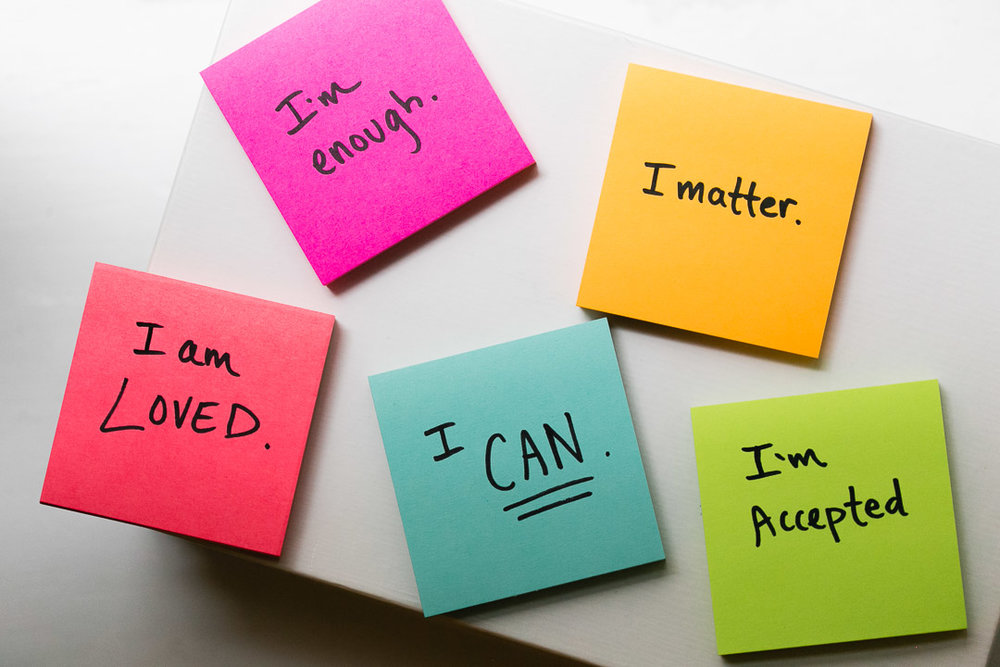 I'm
enough.
I matter.
I am
LOVED.
I CAN.
I'm
Accepted